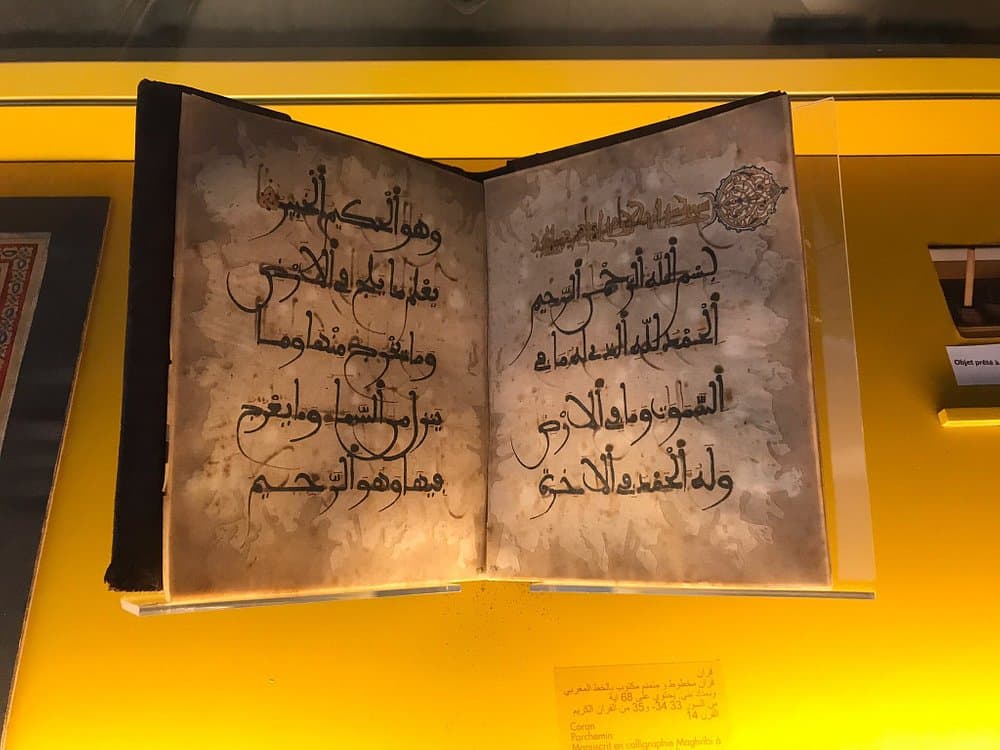 بسم الله الرحمن الرحيم
الحمد لله الذي له ما في
السموت وما في الارض
وله الحمد في الاخرة
وهو الحكيم الخبير
يعلم ما يلج في الارض
وما يخرج منها وما
ينزل من السماء وما يعرج
فيها وهو الرحيم
Objet prêté à
قرآن
قرآن مخطوط و منمنم مكتوب بالخط المغربي
وبمداد بني. يحتوي على 68 اية
من السور 33 34، و35 من القرآن الكريم
القرن 14
Coran
Parchemin
Manuscrit en calligraphie Maghribi à